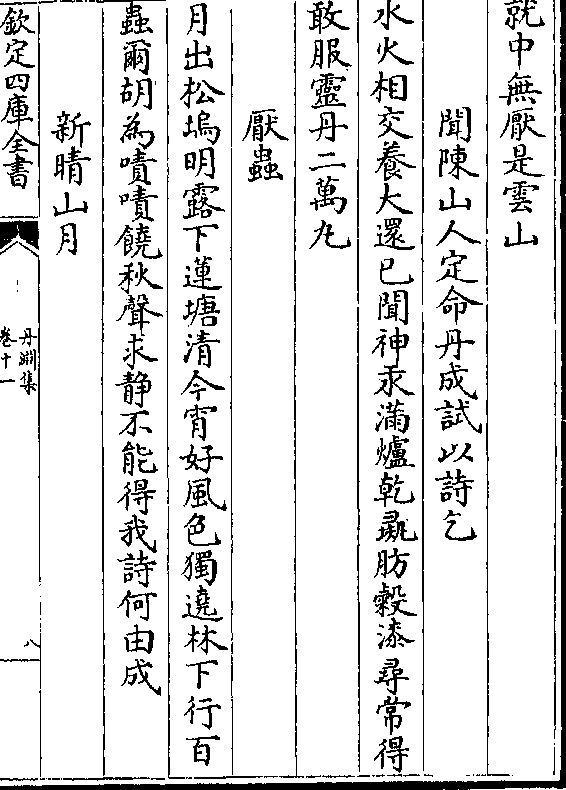 就中無厭是雲山
聞陳山人定命丹成試以詩乞
水火相交養大還已聞神汞滿爐乾
肋穀漆尋常得
敢服靈丹二萬丸
厭蟲
月出松塢明露下蓮塘清今宵好風色獨遶林下行百
蟲爾胡為嘖嘖饒秋聲求静不能得我詩何由成
新晴山月
欽定四庫全書
丹淵集
卷十一
八